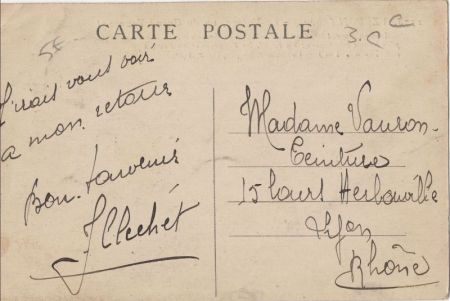 CARTE POSTALE
5f
3.C C
J'irais vous voir
a mon retour
Bon Souvenir
J Clechét
Madame Vauron
Teinture
15 Cours Herbouville
Lyon
Rhône